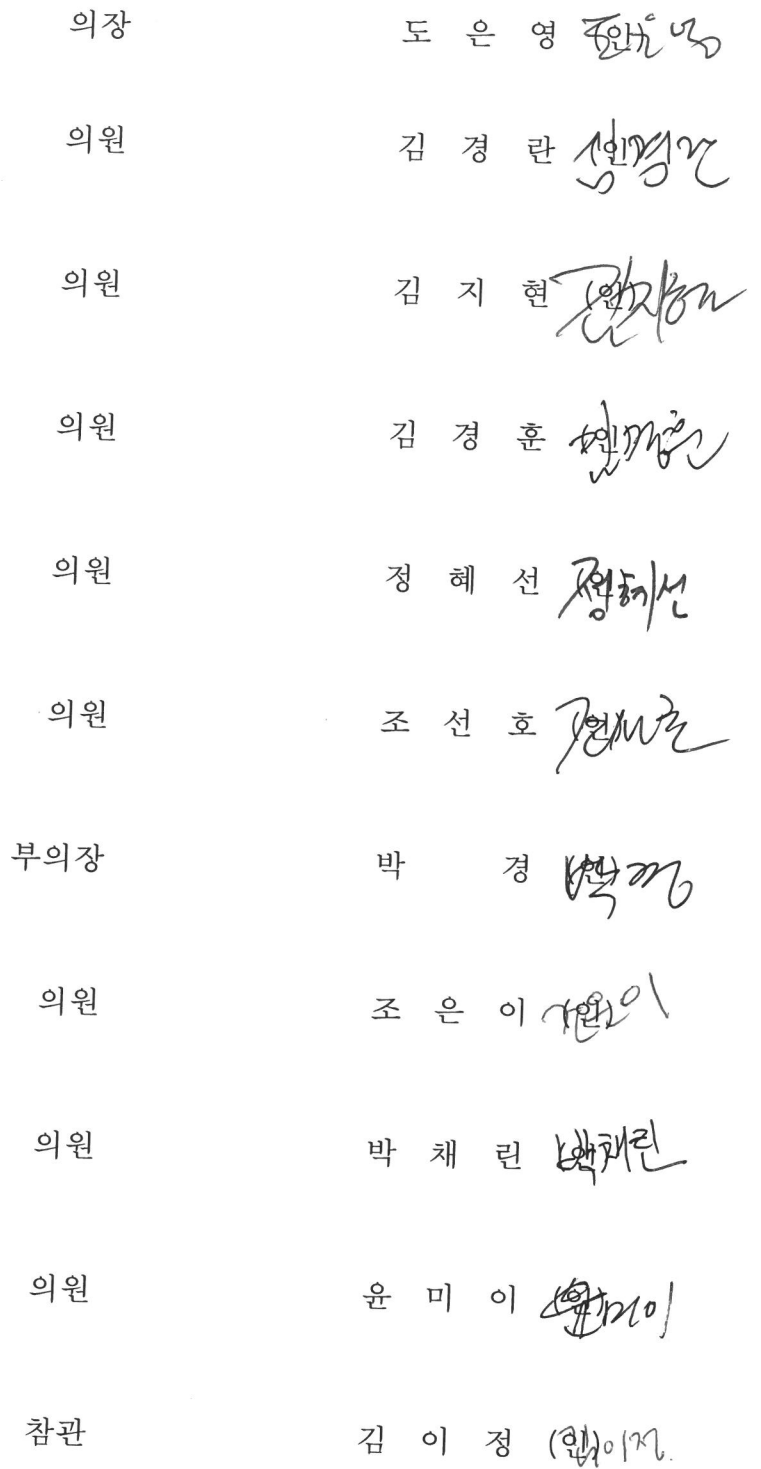 의장 도 은 영 (인) 도은영
의원 김 경 란 (인) 김경란
의원 김 지 현 (인) 김지현
의원 김 경 훈 (인) 김경훈
의원 정 혜 선 (인) 정혜선
의원 조 선 호 (인) 조선호
부의장 박 경 (인) 박경
의원 조 은 이 (인) 조은이
의원 박 채 린 (인) 박채린
의원 윤 미 이 (인) 윤미이
참관 김 이 정 (인) 김이정